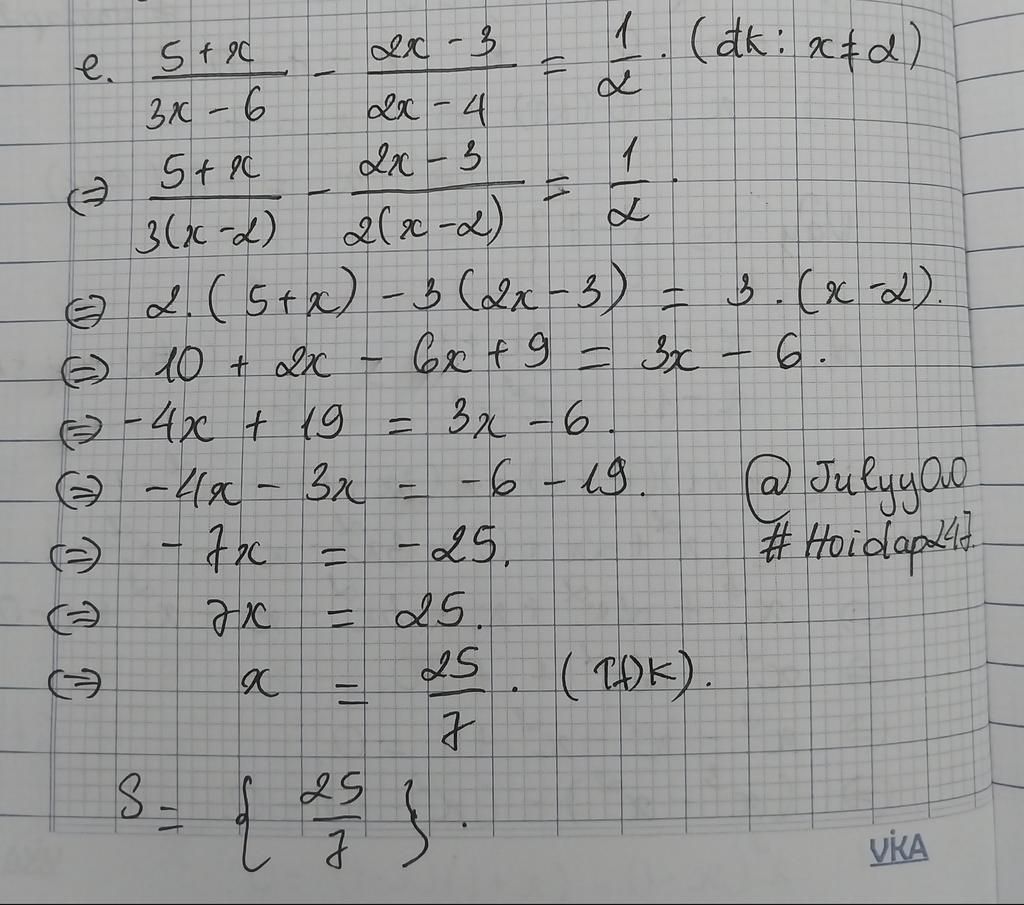 e. (5 + x)/(3x - 6) - (2x - 3)/(2x - 4) = 1/2. (đk: x ≠ 2)
⇔ (5 + x)/(3(x - 2)) - (2x - 3)/(2(x - 2)) = 1/2.
⇔ 2.(5 + x) - 3(2x - 3) = 3.(x - 2).
⇔ 10 + 2x - 6x + 9 = 3x - 6.
⇔ -4x + 19 = 3x - 6.
⇔ -4x - 3x = -6 - 19.
@Julyy0.0
⇔ -7x = -25.
#Hoidap247
⇔ 7x = 25.
⇔ x = 25/7. (TĐK).
S = { 25/7 }.
VIKA